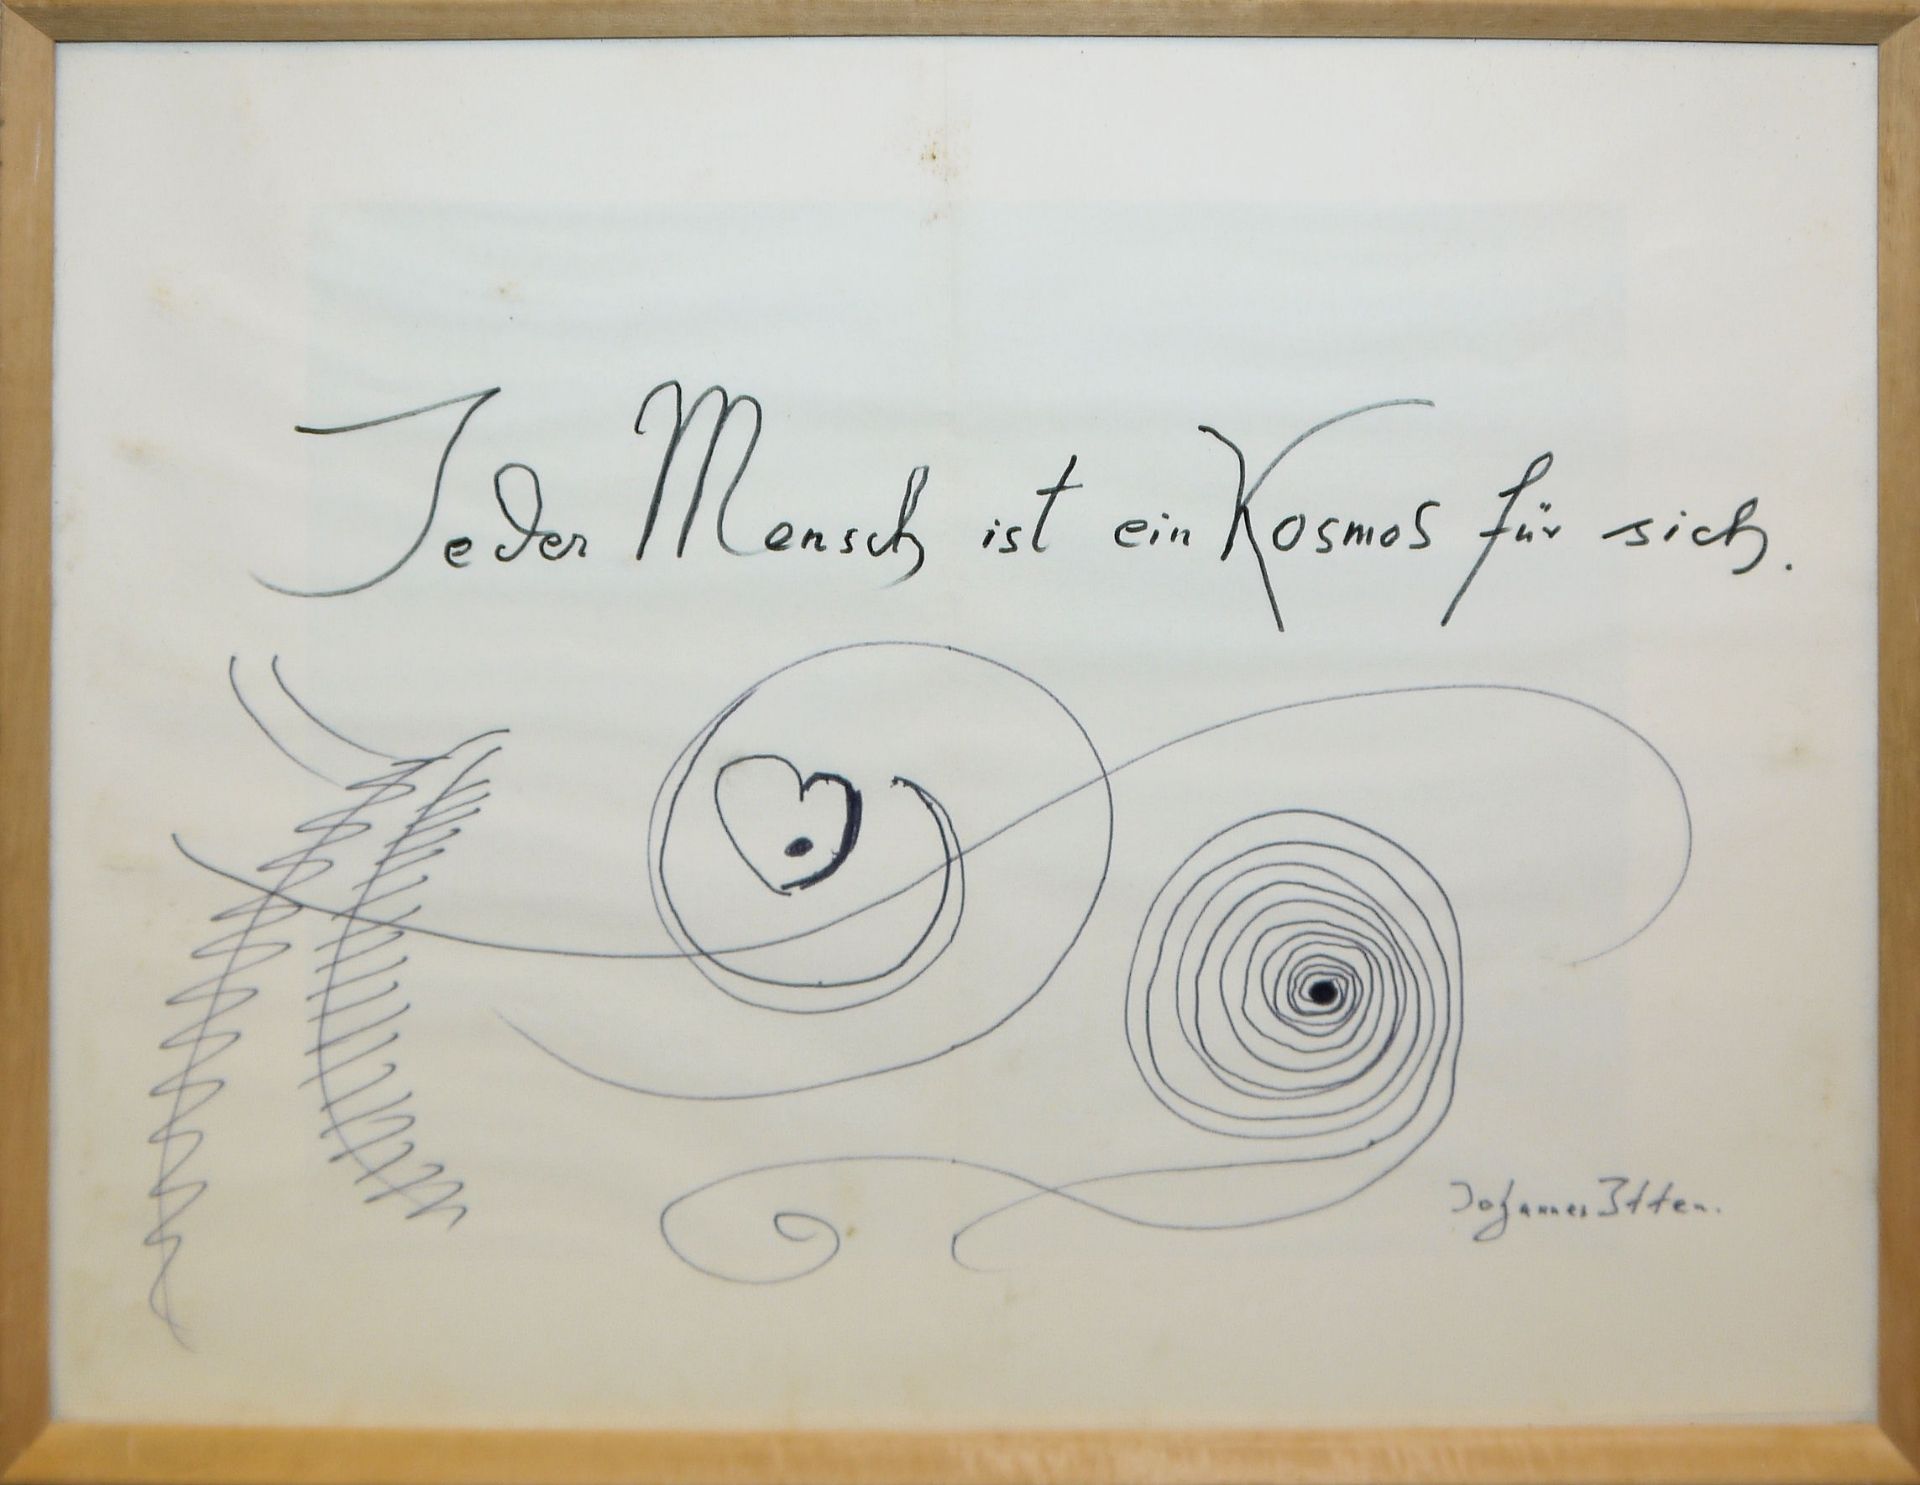 Jeder Mensch ist ein Kosmos für sich.
Johannes Itten.